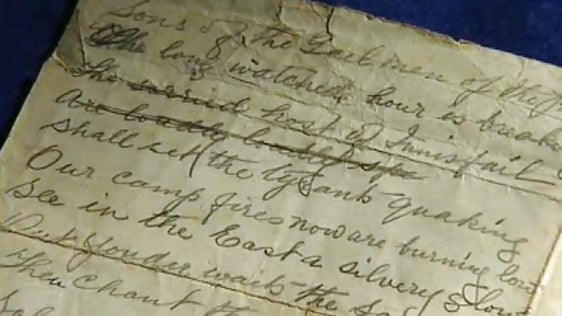 Sons of the Gael men of the P
The long watched hour is breaki
The serried host of Innisfail
Are loudly loudly
Shall set the tyrants quaking
Our camp fires now are burning low
See in the East a silvery glow
Out yonder waits the Sa
Then chant th
Sol